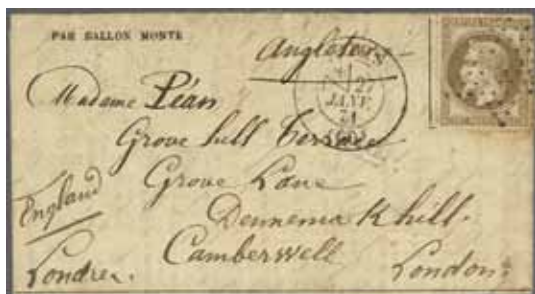 PAR BALLON MONTÉ
Angleterre
27
JANV.
71
Madame Péan
Grove hill Terrace
Grove Lane
Dennemark hill.
Camberwell
England
Londres.
London